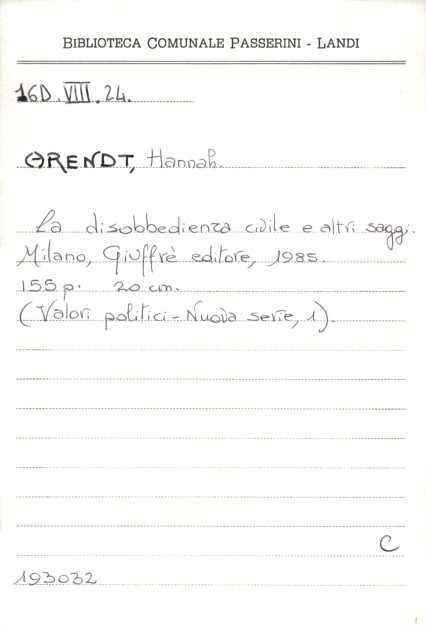 BIBLIOTECA COMUNALE PASSERINI - LANDI
16D.VIII.24.
ARENDT, Hannah.
La disobbedienza civile e altri saggi.
Milano, Giuffrè editore, 1985.
155 p. 20 cm.
(Valori politici - Nuova serie, 1).
C
193032